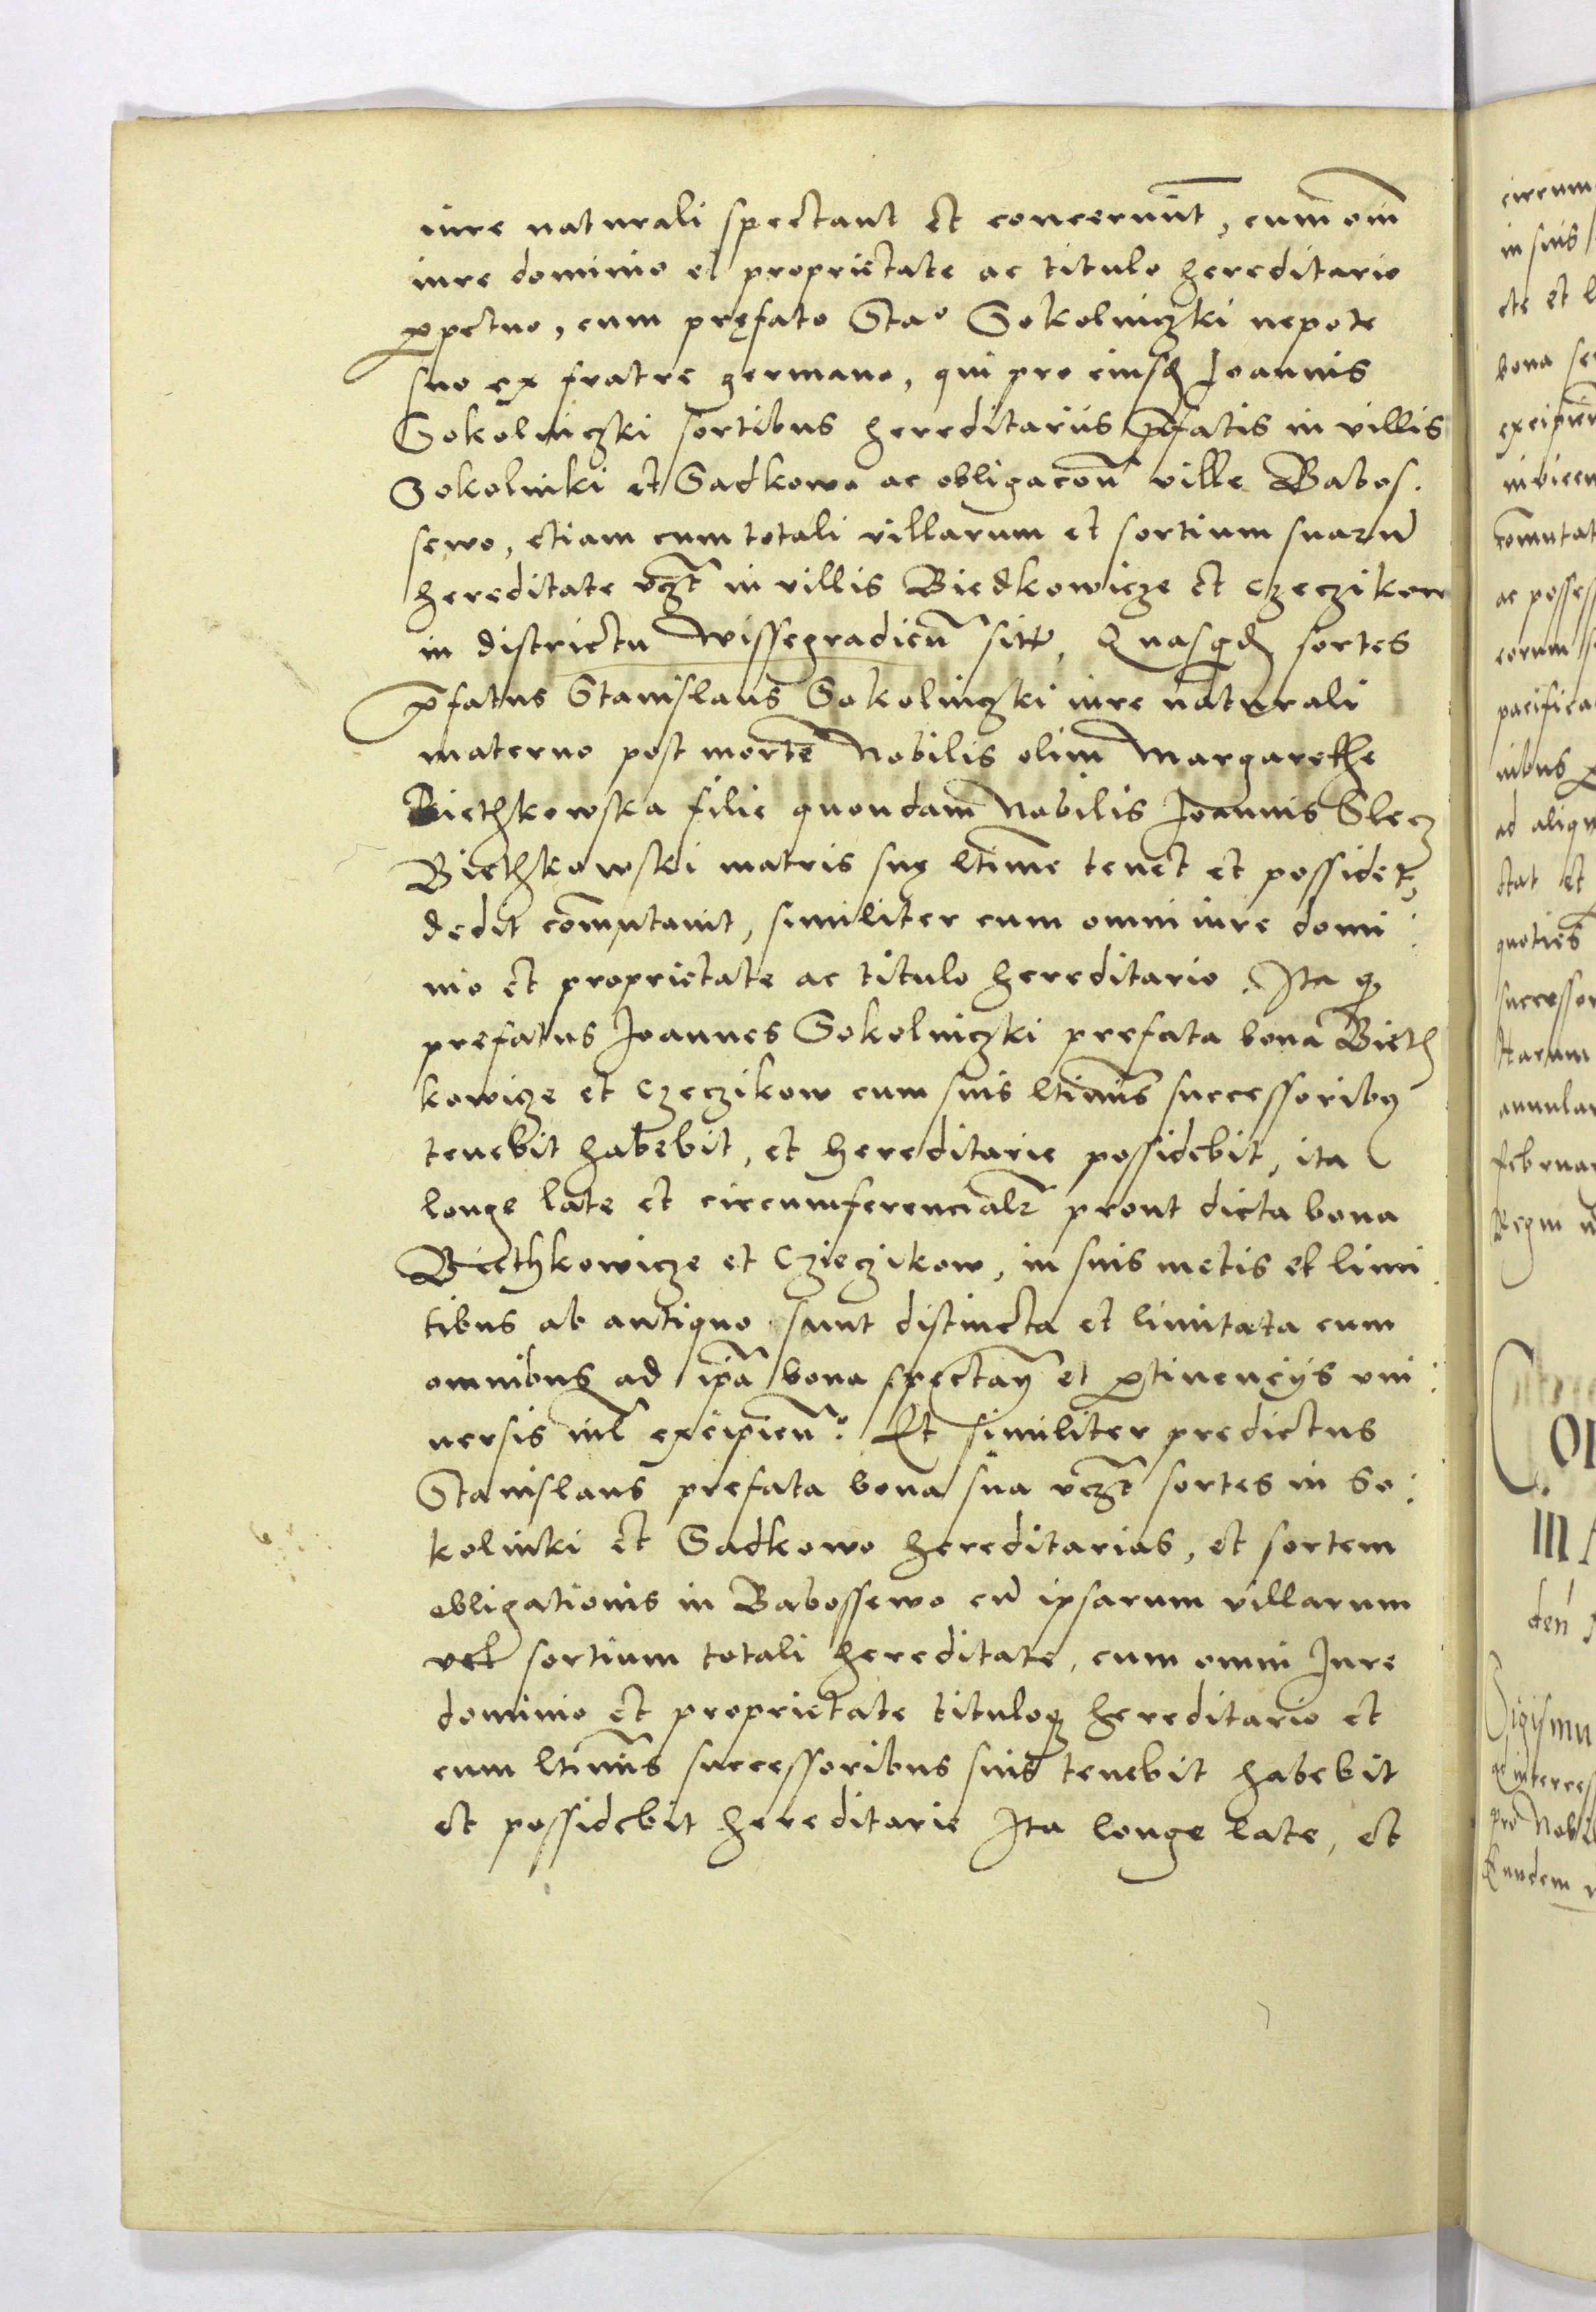 iure naturali spectant et concernũt, cum om̃i
iure dominio et proprietate ac titulo hereditario
ꝑpetuo, cum pręfato Staº Sokolniczki nepote
suo ex fratre germano, qui pro eiusd Joannis
Sokolniczki sortibus hereditariis p̃fatis in villis
Sokolniki et Sadkowo ac obligacoñ ville Babos.
sewo, etiam cum totali villarum et sortium suarũ
hereditate vcz̃t in villis Biedkowicze et Czeczikow
in districtu Wissegradieñ sit̃, Quasqd sortes
p̃fatus Stanislaus Sokolniczki iure naturali
materno post mortẽ Nobilis olim Margarethe
Biethkowska filie quondam Nobilis Joannis Slecz
Biethkowski matris suę ltim̃e tenet et possidet,
dedit com̃utauit, similiter cum omni iure domi:
nio et proprietate ac titulo hereditario. Ita ꝙ
prefatus Joannes Sokolniczki prefata bona Bieth
kowicze et Czeczikow cum suis ltimis̃ successoribꝫ
tenebit habebit, et hereditarie possidebit, ita
longe late et circumferencialr̃ prout dicta bona
Biethkowicze et Czieczikow, in suis metis et limi:
tibus ab antiquo sunt distincta et limitata cum
omnibus ad ip̃a bona spectañ et ꝑtinencijs vni:
uersis nil̃ excipieñ. Et similiter predictus
Stanislaus prefata bona sua vcz̃t sortes in So:
kolniki et Sadkowo hereditarias, et sortem
obligationis in Babossewo cũ ipsarum villarum
vel sortium totali hereditate, cum omni Jure
dominio et proprietate tituloqꝫ hereditario et
cum ltimis̃ successoribus suis tenebit habebit
et possidebit hereditarie Ita longe late, et
circum
in suis
cte et l
bona se
excipieñ
inuicem
com̃utat
ac possess
eorum
pacifica
nibus
ad aliqu
stat et
quoties
successor
annular
februar
Regni
in
den
Sigismu
ad interces
pro Nobi
Eundem